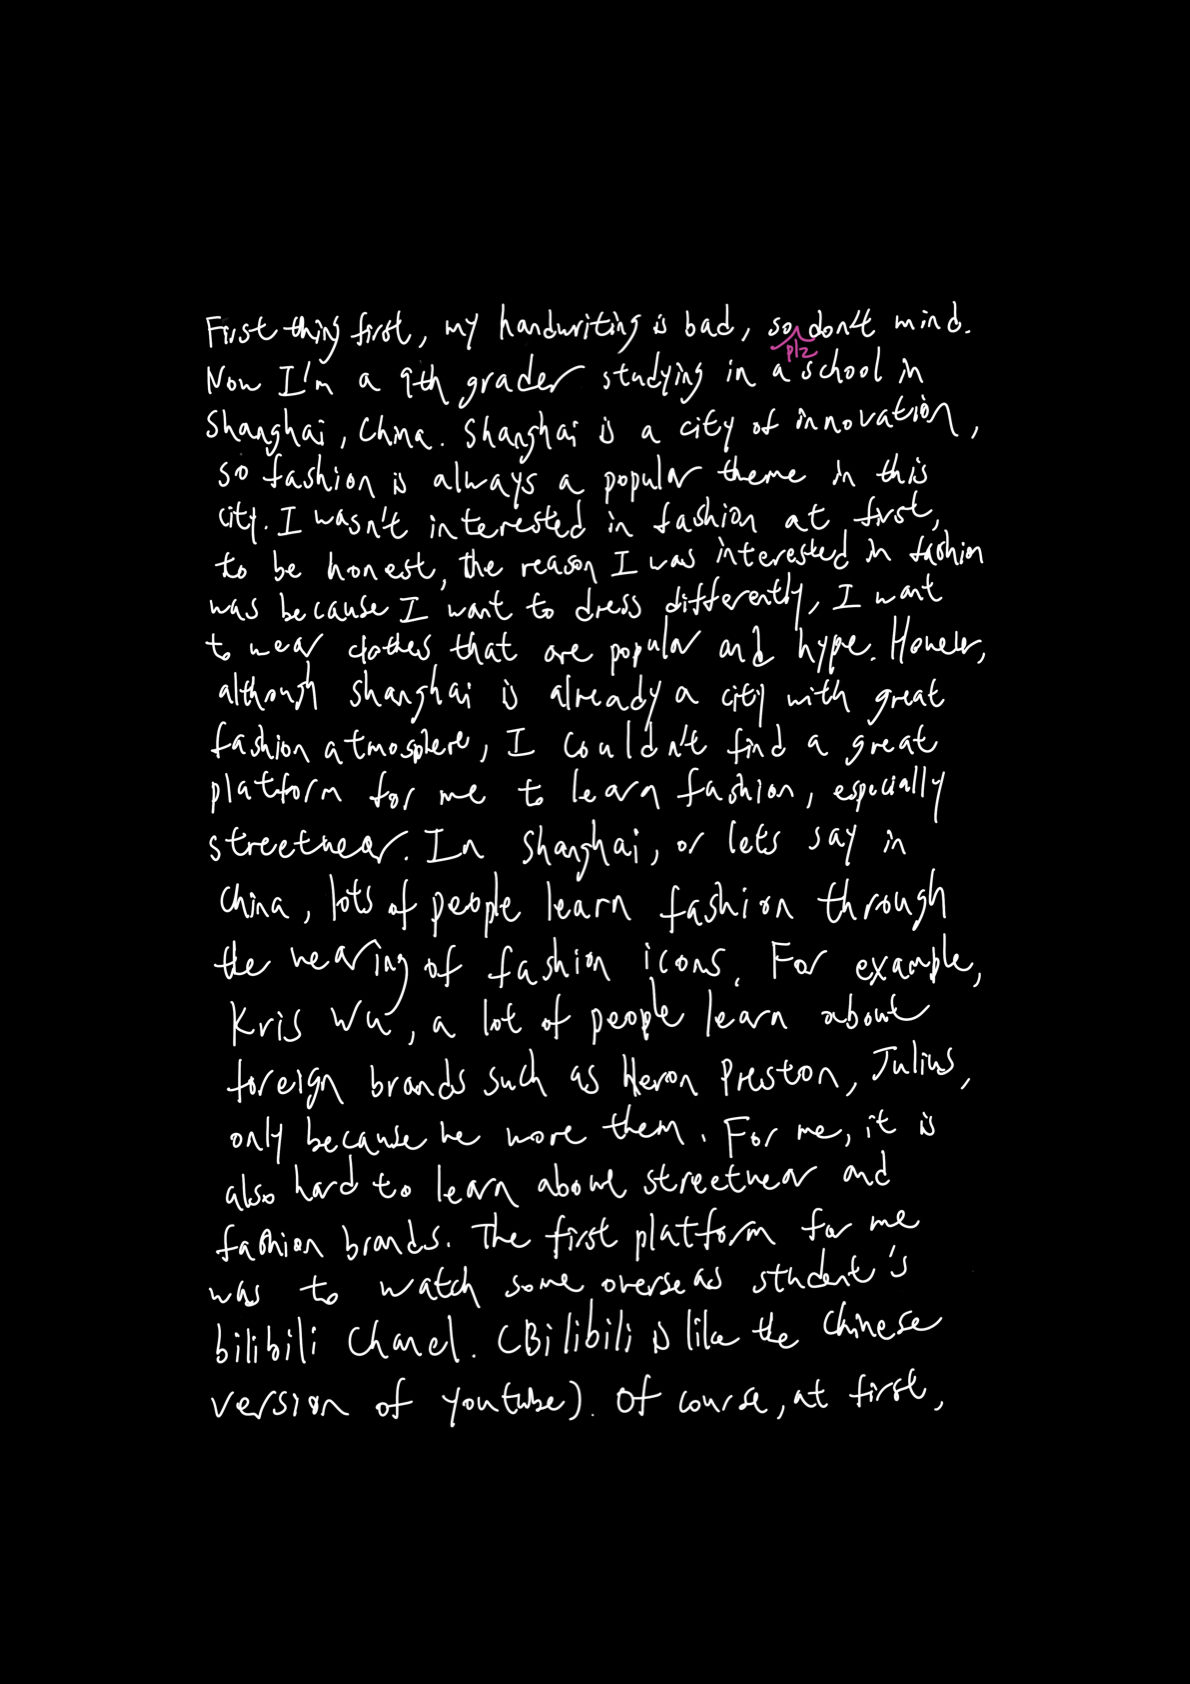 First thing first, my handwriting is bad, so plz don't mind.
Now I'm a 9th grader studying in a school in
Shanghai, China. Shanghai is a city of innovation,
so fashion is always a popular theme in this
city. I wasn't interested in fashion at first,
to be honest, the reason I was interested in fashion
was because I want to dress differently, I want
to wear clothes that are popular and hype. However,
although Shanghai is already a city with great
fashion atmosphere, I couldn't find a great
platform for me to learn fashion, especially
streetwear. In Shanghai, or lets say in
China, lots of people learn fashion through
the wearing of fashion icons. For example,
Kris Wu, a lot of people learn about
foreign brands such as Heron Preston, Julius,
only because he wore them. For me, it is
also hard to learn about streetwear and
fashion brands. The first platform for me
was to watch some overseas student's
bilibili Chanel. (Bilibili is like the Chinese
version of youtube). Of course, at first,